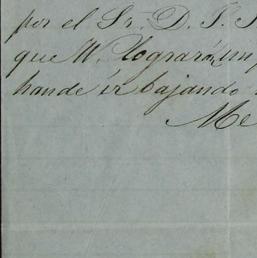 por el Sr. D. J.
que W. lograrán un
hande ir bajando
Me